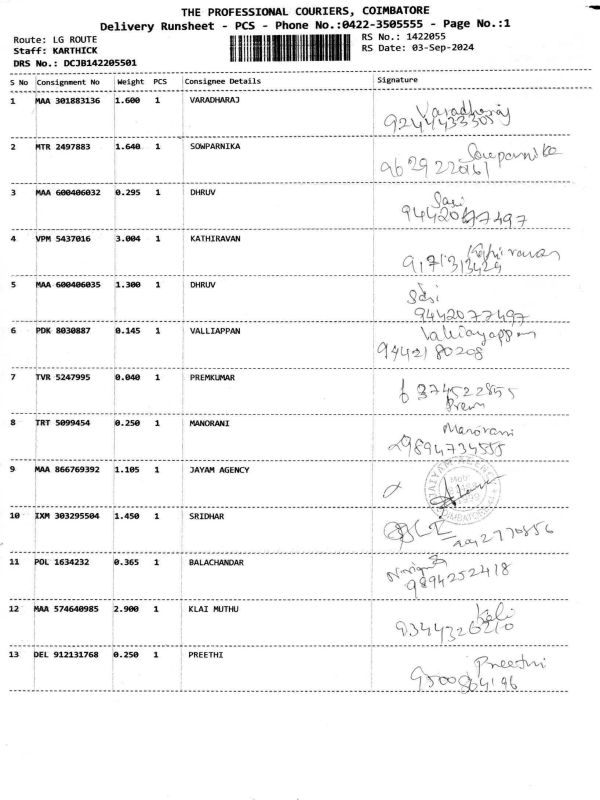 THE PROFESSIONAL COURIERS, COIMBATORE
Delivery Runsheet - PCS - Phone No.:0422-3505555 - Page No.:1
Route: LG ROUTE
RS No.: 1422055
Staff: KARTHICK
RS Date: 03-Sep-2024
DRS No.: DCJB142205501
S No Consignment No Weight PCS Consignee Details Signature
1 MAA 301883136 1.600 1 VARADHARAJ Varadharaj
2 MTR 2497883 1.640 1 SOWPARNIKA Sowparnika
3 MAA 600406032 0.295 1 DHRUV Sasi
9442077497
4 VPM 5437016 3.004 1 KATHIRAVAN
9171313424
5 MAA 600406035 1.300 1 DHRUV Sasi
9442077497
6 PDK 8030887 0.145 1 VALLIAPPAN
9442180208
7 TVR 5247995 0.040 1 PREMKUMAR 6374522855
Prem
8 TRT 5099454 0.250 1 MANORANI Manorani
9894734555
9 MAA 866769392 1.105 1 JAYAM AGENCY
10 IXM 303295504 1.450 1 SRIDHAR
11 POL 1634232 0.365 1 BALACHANDAR
9894252418
12 MAA 574640985 2.900 1 KLAI MUTHU
9344326210
13 DEL 912131768 0.250 1 PREETHI Preethi
9500864196